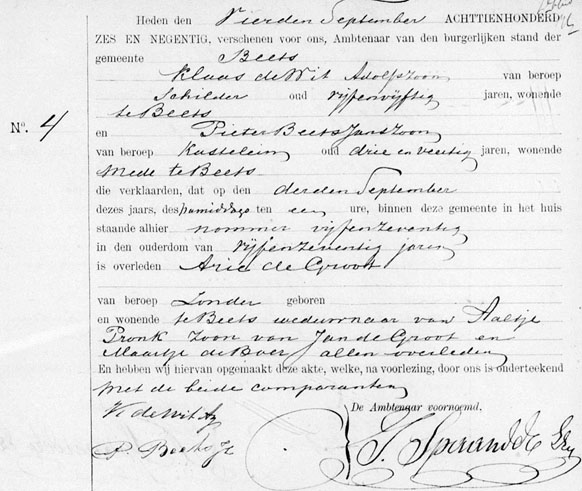 Heden den Vierden September ACHTTIENHONDERD
ZES EN NEGENTIG, verschenen voor ons, Ambtenaar van den burgerlijken stand der
gemeente Beets
Klaas de Wit Adolfszoon van beroep
Schilder oud vijfenvijftig jaren, wonende
te Beets
No. 4
en Pieter Beets Janszoon
van beroep Kastelein oud drie en veertig jaren, wonende
mede te Beets
die verklaarden, dat op den derden September
dezes jaars, des namiddags ten een ure, binnen deze gemeente in het huis
staande alhier nommer vijfenzeventig
in den ouderdom van vijfenzeventig jaren
is overleden Arie de Groot
van beroep Zonder geboren
en wonende te Beets weduwnaar van Aaltje
Pronk Zoon van Jan de Groot en
Maartje de Boer allen overleden
En hebben wij hiervan opgemaakt deze akte, welke, na voorlezing, door ons is onderteekend
met de beide comparanten
K. de Wit Az
De Ambtenaar voornoemd.
P. Beets Jz